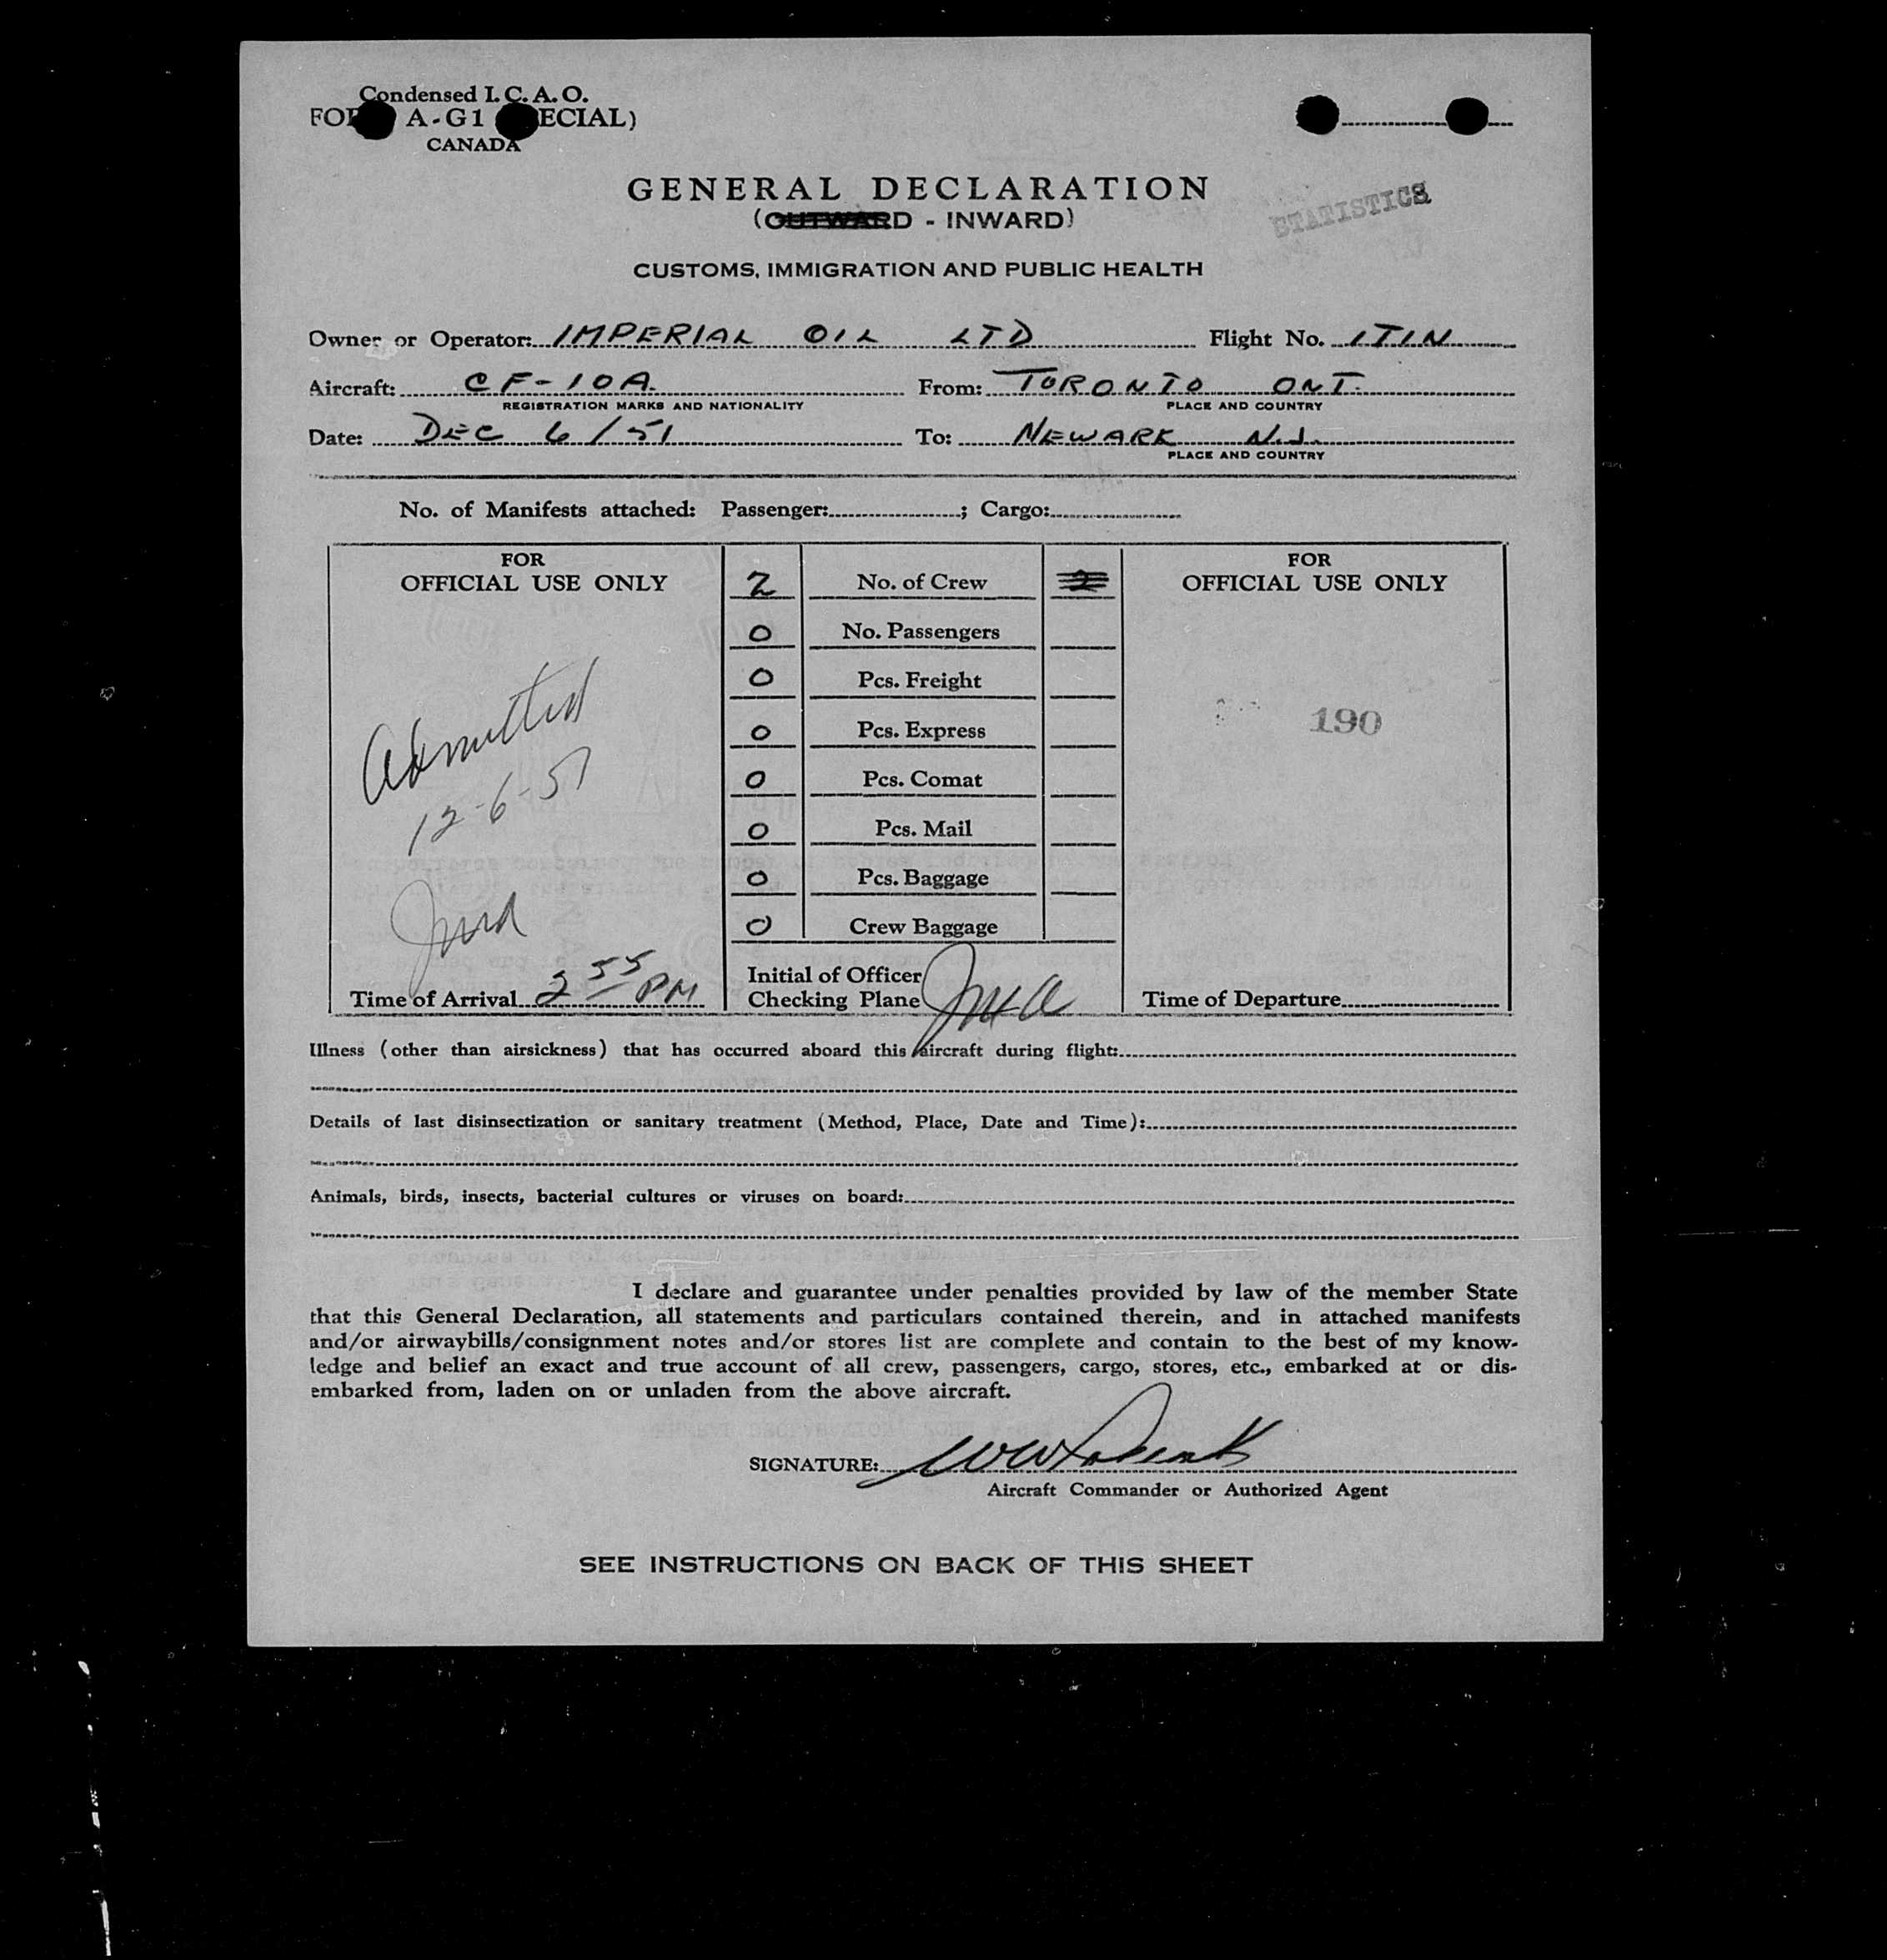 Condensed I. C. A. O.
A-G1
CANADA
GENERAL DECLARATION
(OUTWARD - INWARD)
STATISTICS
CUSTOMS, IMMIGRATION AND PUBLIC HEALTH
Owner or Operator: IMPERIAL OIL LTD Flight No. ITIN
Aircraft: CF-10A From: TORONTO ONT.
REGISTRATION MARKS AND NATIONALITY PLACE AND COUNTRY
Date: DEC 6/51 To: NEWARK N.J.
PLACE AND COUNTRY
No. of Manifests attached: Passenger: ; Cargo:
FOR
OFFICIAL USE ONLY
2 No. of Crew 2
0 No. Passengers
0 Pcs. Freight
0 Pcs. Express
0 Pcs. Comat
0 Pcs. Mail
0 Pcs. Baggage
0 Crew Baggage
FOR
OFFICIAL USE ONLY
Admitted
12-6-51
190
Time of Arrival 2 55 PM
Initial of Officer
Checking Plane
Time of Departure
Illness (other than airsickness) that has occurred aboard this aircraft during flight:
Details of last disinsectization or sanitary treatment (Method, Place, Date and Time):
Animals, birds, insects, bacterial cultures or viruses on board:
I declare and guarantee under penalties provided by law of the member State
that this General Declaration, all statements and particulars contained therein, and in attached manifests
and/or airwaybills/consignment notes and/or stores list are complete and contain to the best of my know-
ledge and belief an exact and true account of all crew, passengers, cargo, stores, etc., embarked at or dis-
embarked from, laden on or unladen from the above aircraft.
SIGNATURE:
Aircraft Commander or Authorized Agent
SEE INSTRUCTIONS ON BACK OF THIS SHEET